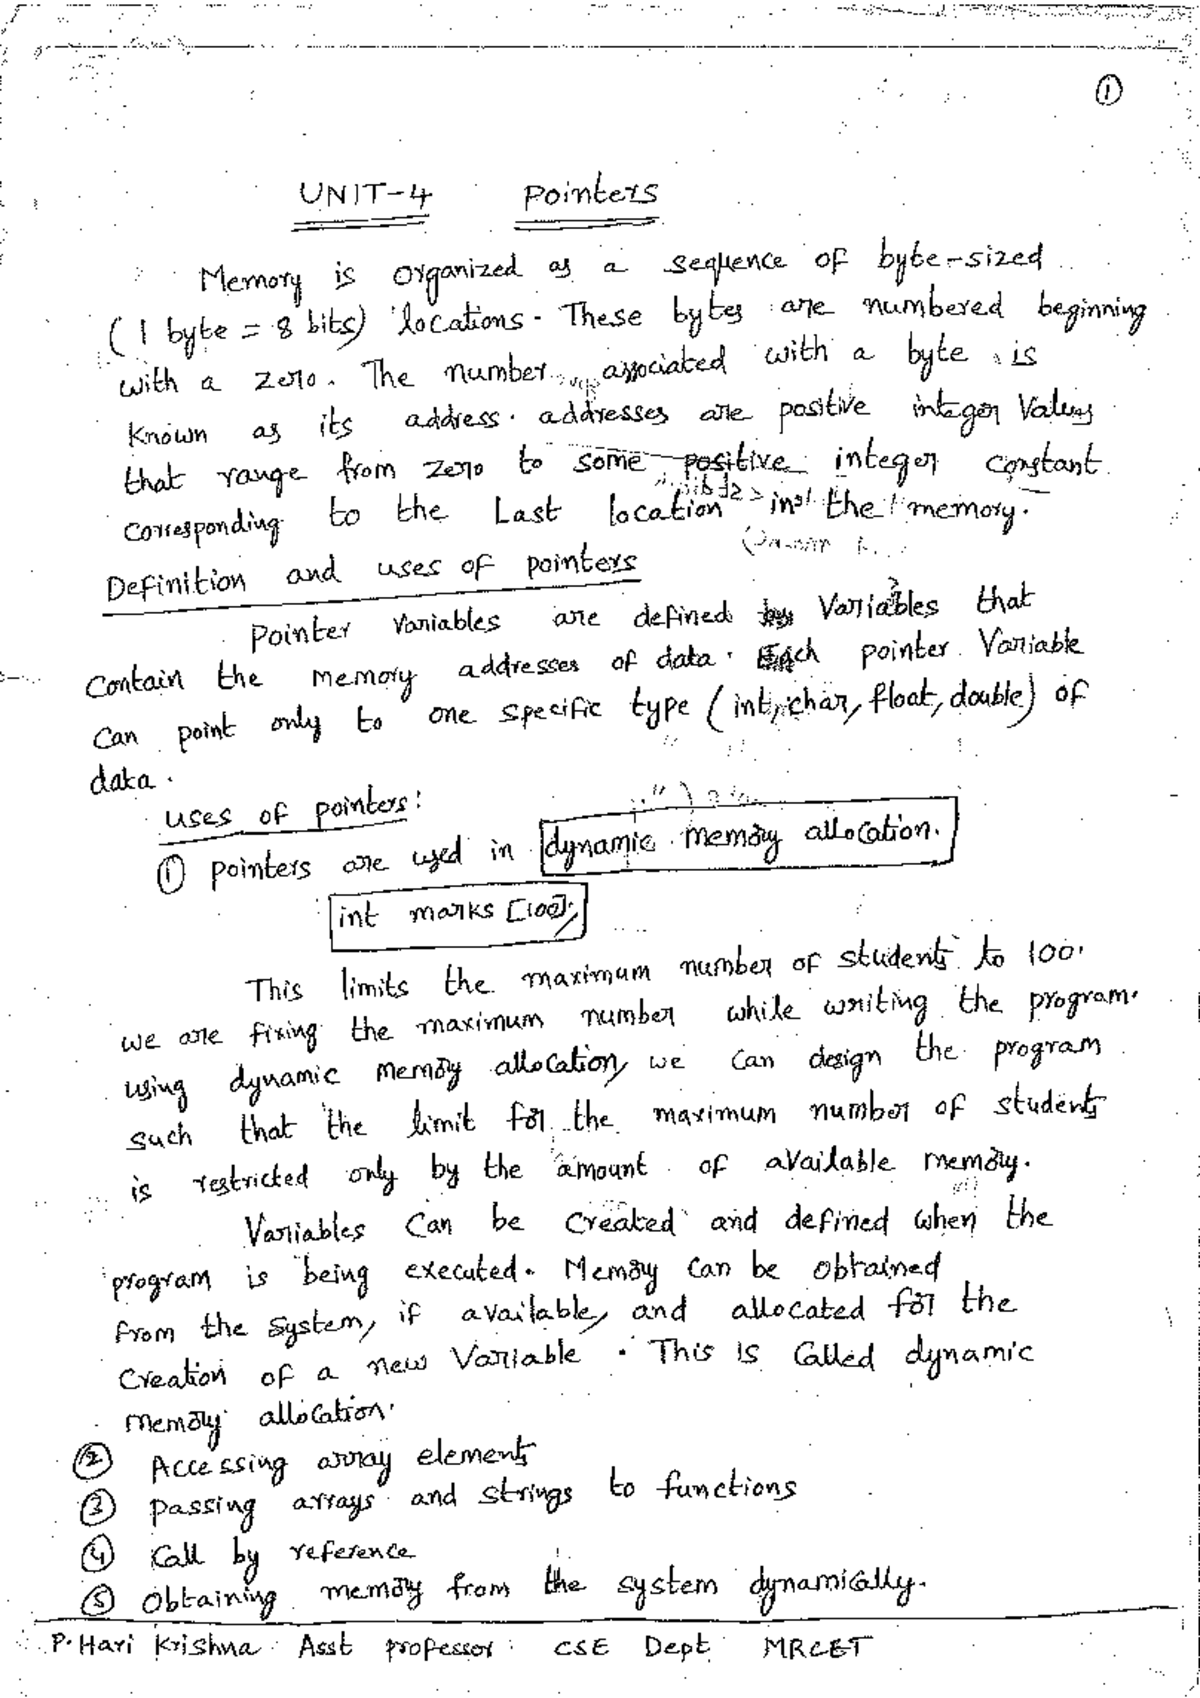 ①
UNIT-4 Pointers
Memory is organized as a sequence of byte-sized
(1 byte = 8 bits) locations. These bytes are numbered beginning
with a zero. The number associated with a byte is
known as its address. addresses are positive integer values
that range from zero to some positive integer constant
corresponding to the Last location in the memory.
Definition and uses of pointers
Pointer variables are defined Variables that
contain the memory addresses of data. Each pointer Variable
can point only to one specific type (int, char, float, double) of
data.
uses of pointers:
① pointers are used in dynamic memory allocation.
int marks [100];
This limits the maximum number of students to 100.
we are fixing the maximum number while writing the program.
using dynamic memory allocation, we can design the program
such that the limit for the maximum number of students
is restricted only by the amount of available memory.
Variables can be created and defined when the
program is being executed. Memory can be obtained
from the system, if available, and allocated for the
creation of a new Variable. This is called dynamic
memory allocation.
② Accessing array elements
③ passing arrays and strings to functions
④ call by reference
⑤ obtaining memory from the system dynamically.
P. Hari Krishna Asst professor CSE Dept MRCET